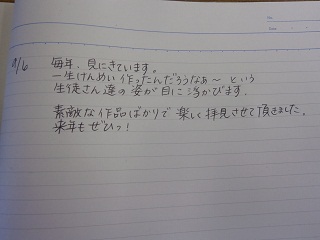 11/6 毎年、見にきています。
一生けんめい作ったんだろうなぁ〜 という
生徒さん達の姿が目に浮かびます.
素敵な作品ばかりで 楽しく拝見させて頂きました。
来年もぜひっ!